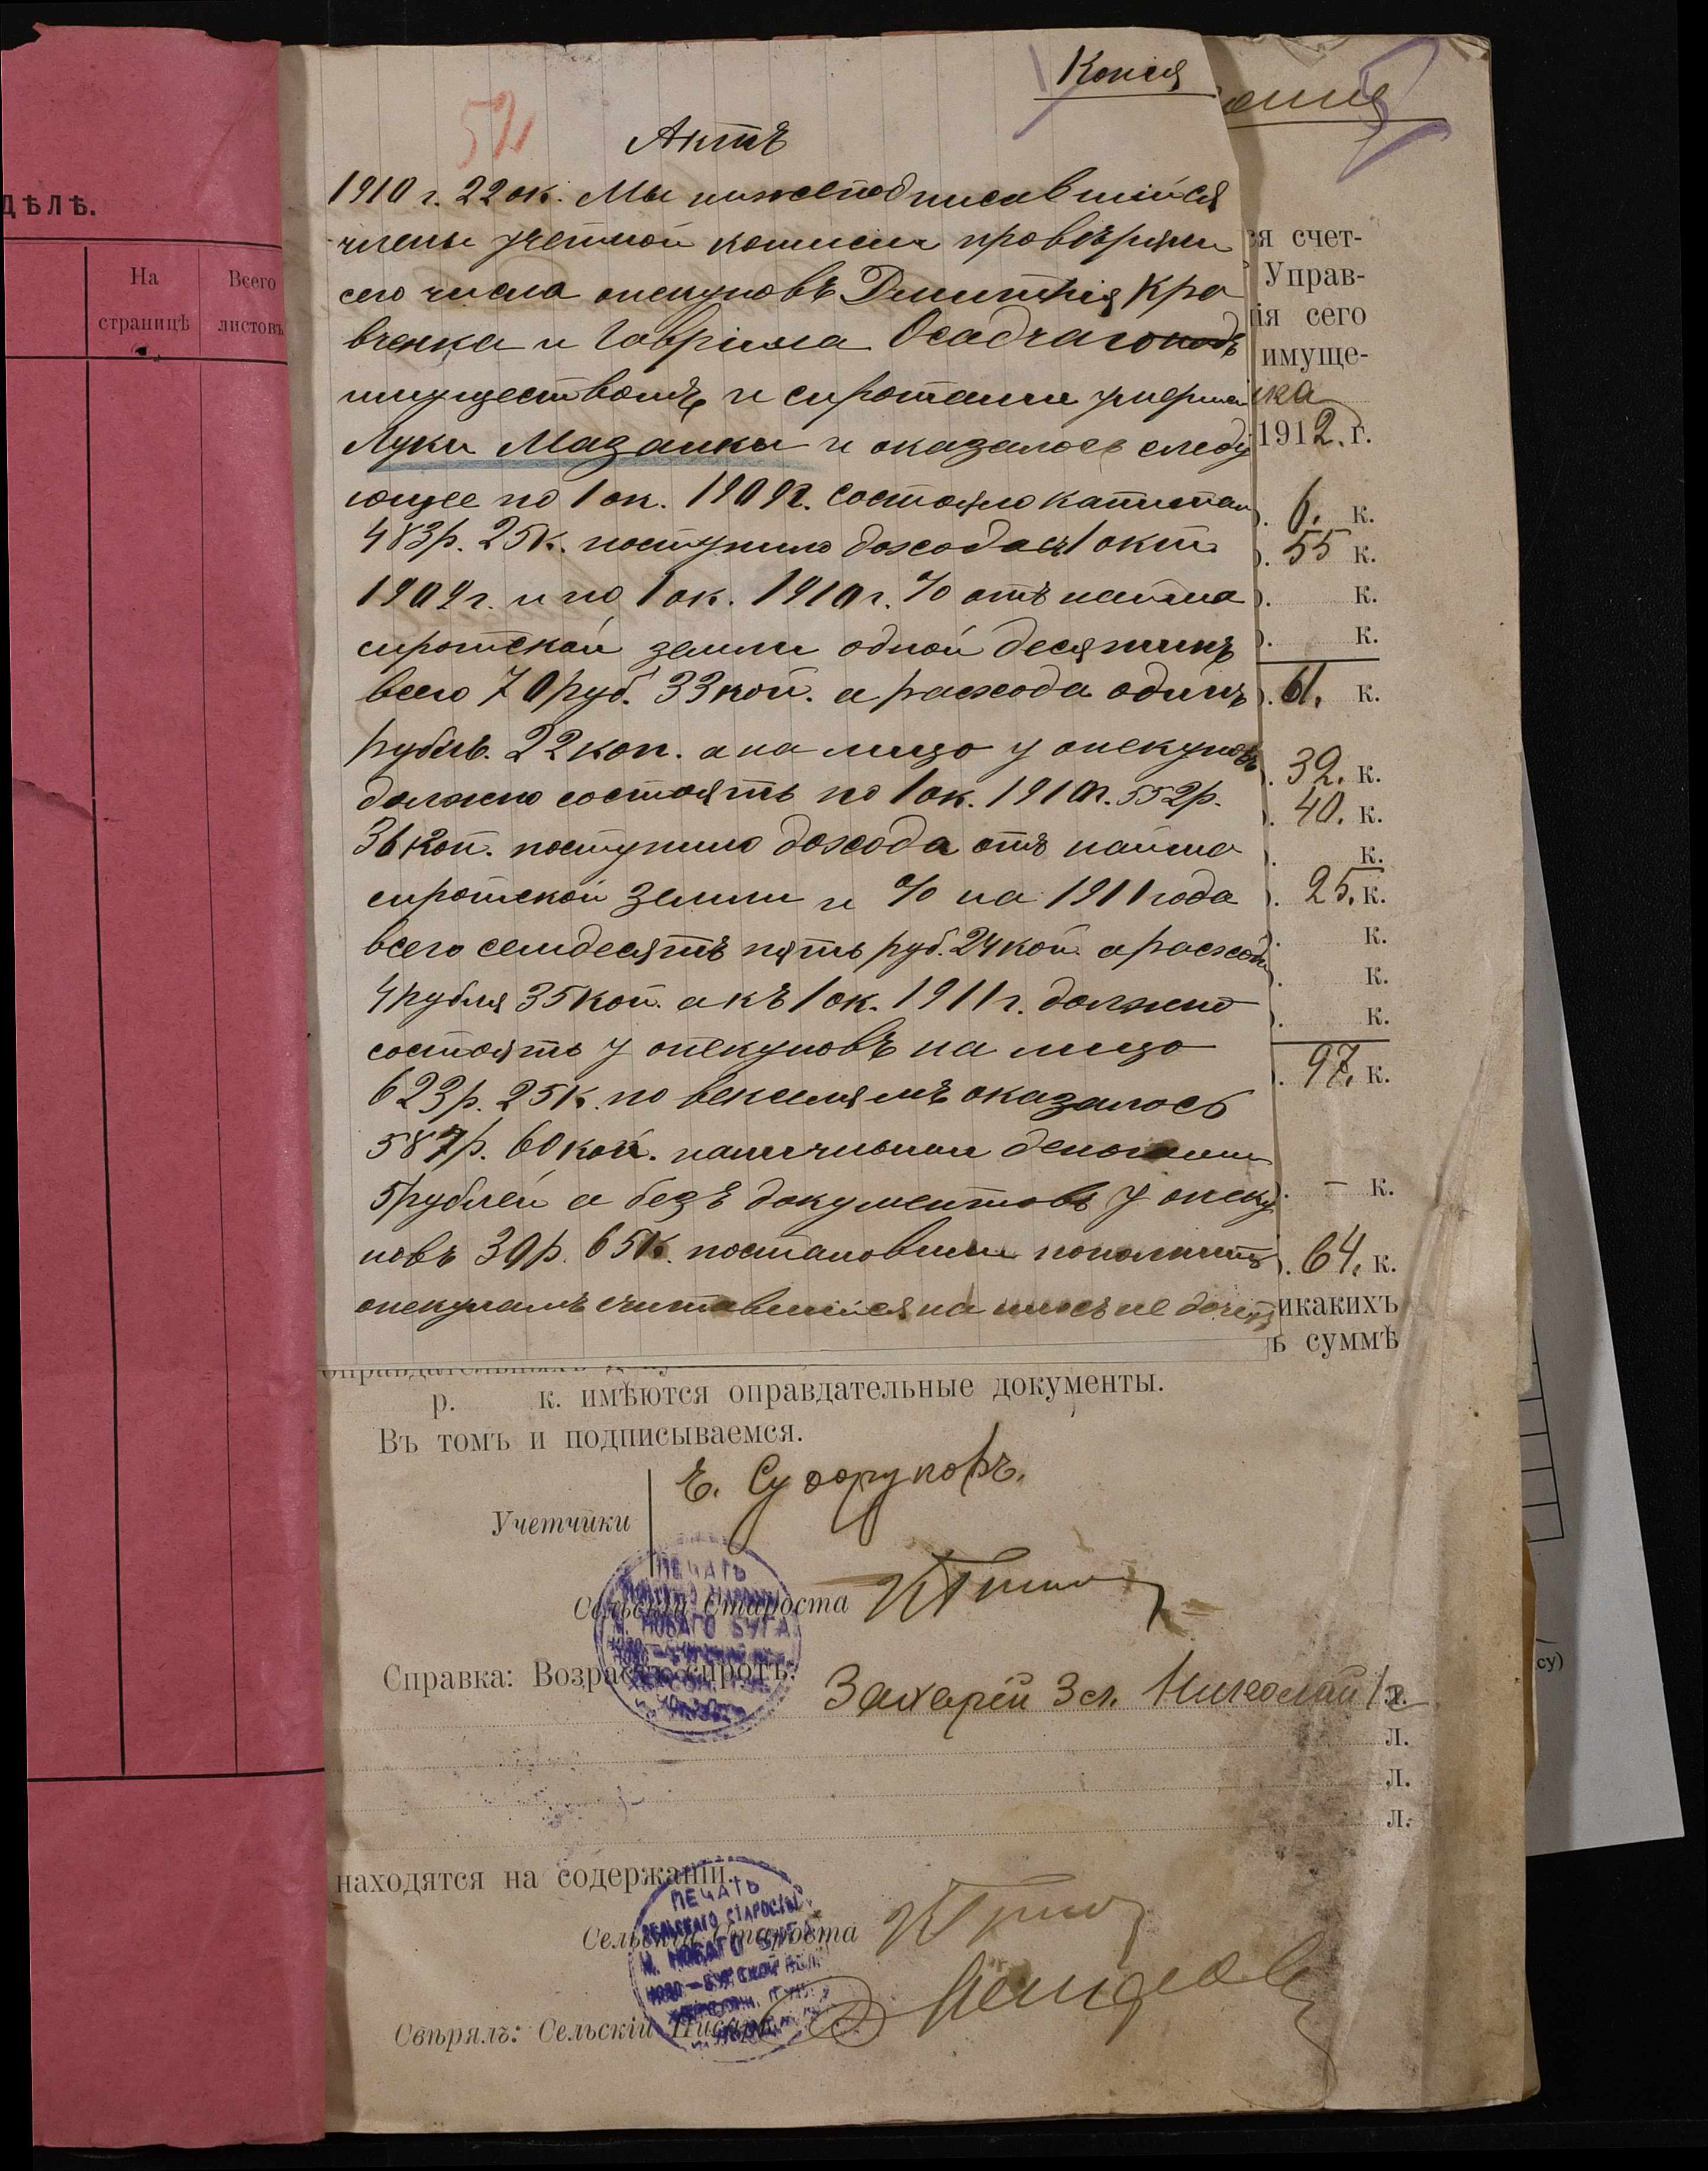 ДѢЛѢ.
На
страницѣ
Всего
листовъ
Копія
52
Актъ
1910 г. 22 ок. Мы нижеподписавшійся
члены учетной комисіи провѣряли
сего числа опекуновъ Дмитрія Кра
вченка и Гавріила Осадчаго надъ
имуществомъ и сиротами умерша
Луки Мазанки и оказалось следу
ющее по 1 ок. 1909 г. состояло капитал
483 р. 25 к. поступило дохода съ 1 окт.
1909 г. и по 1 ок. 1910 г. % отъ найма
сиротской земли одной десятинъ
всего 70 руб. 33 коп. а расхода одинъ
рубль. 22 коп. а на лицо у опекуновъ
должно состоять по 1 ок. 1910 г. 552 р.
36 коп. поступило дохода отъ найма
сиротской земли и % на 1911 года
всего семдесятъ пять руб. 24 коп. а расхода
4 рубля 35 коп. а къ 1 ок. 1911 г. должно
состоять у опекуновъ на лицо
623 р. 25 к. по векселямъ оказалось
587 р. 60 коп. наличными деньгами
5 рублей а безъ документовъ у опеку
новъ 30 р. 65 к. постановили пополнить
опекунамъ считавшійся на нихъ не дочетъ
ся счет-
Управ-
ія сего
имуще-
ика
1912 г.
6. к.
55 к.
к.
к.
61. к.
32. к.
40. к.
к.
25. к.
к.
к.
к.
97. к.
– к.
64. к.
икакихъ
ъ суммѣ
р. к. имѣются оправдательные документы.
Въ томъ и подписываемся.
Учетчики
Сельскій Староста
ПЕЧАТЬ
М. НОВАГО БУГА
Справка: Возрастъ сиротъ:
Захарій 3 сл. Николай
л.
л.
л.
находятся на содержаніи.
ПЕЧАТЬ
СЕЛЬСКАГО СТАРОСТЫ
М. НОВАГО БУГА
НОВО–БУГСКОЙ ВОЛ.
Сельскій Староста
Свѣрялъ: Сельскій Писарь